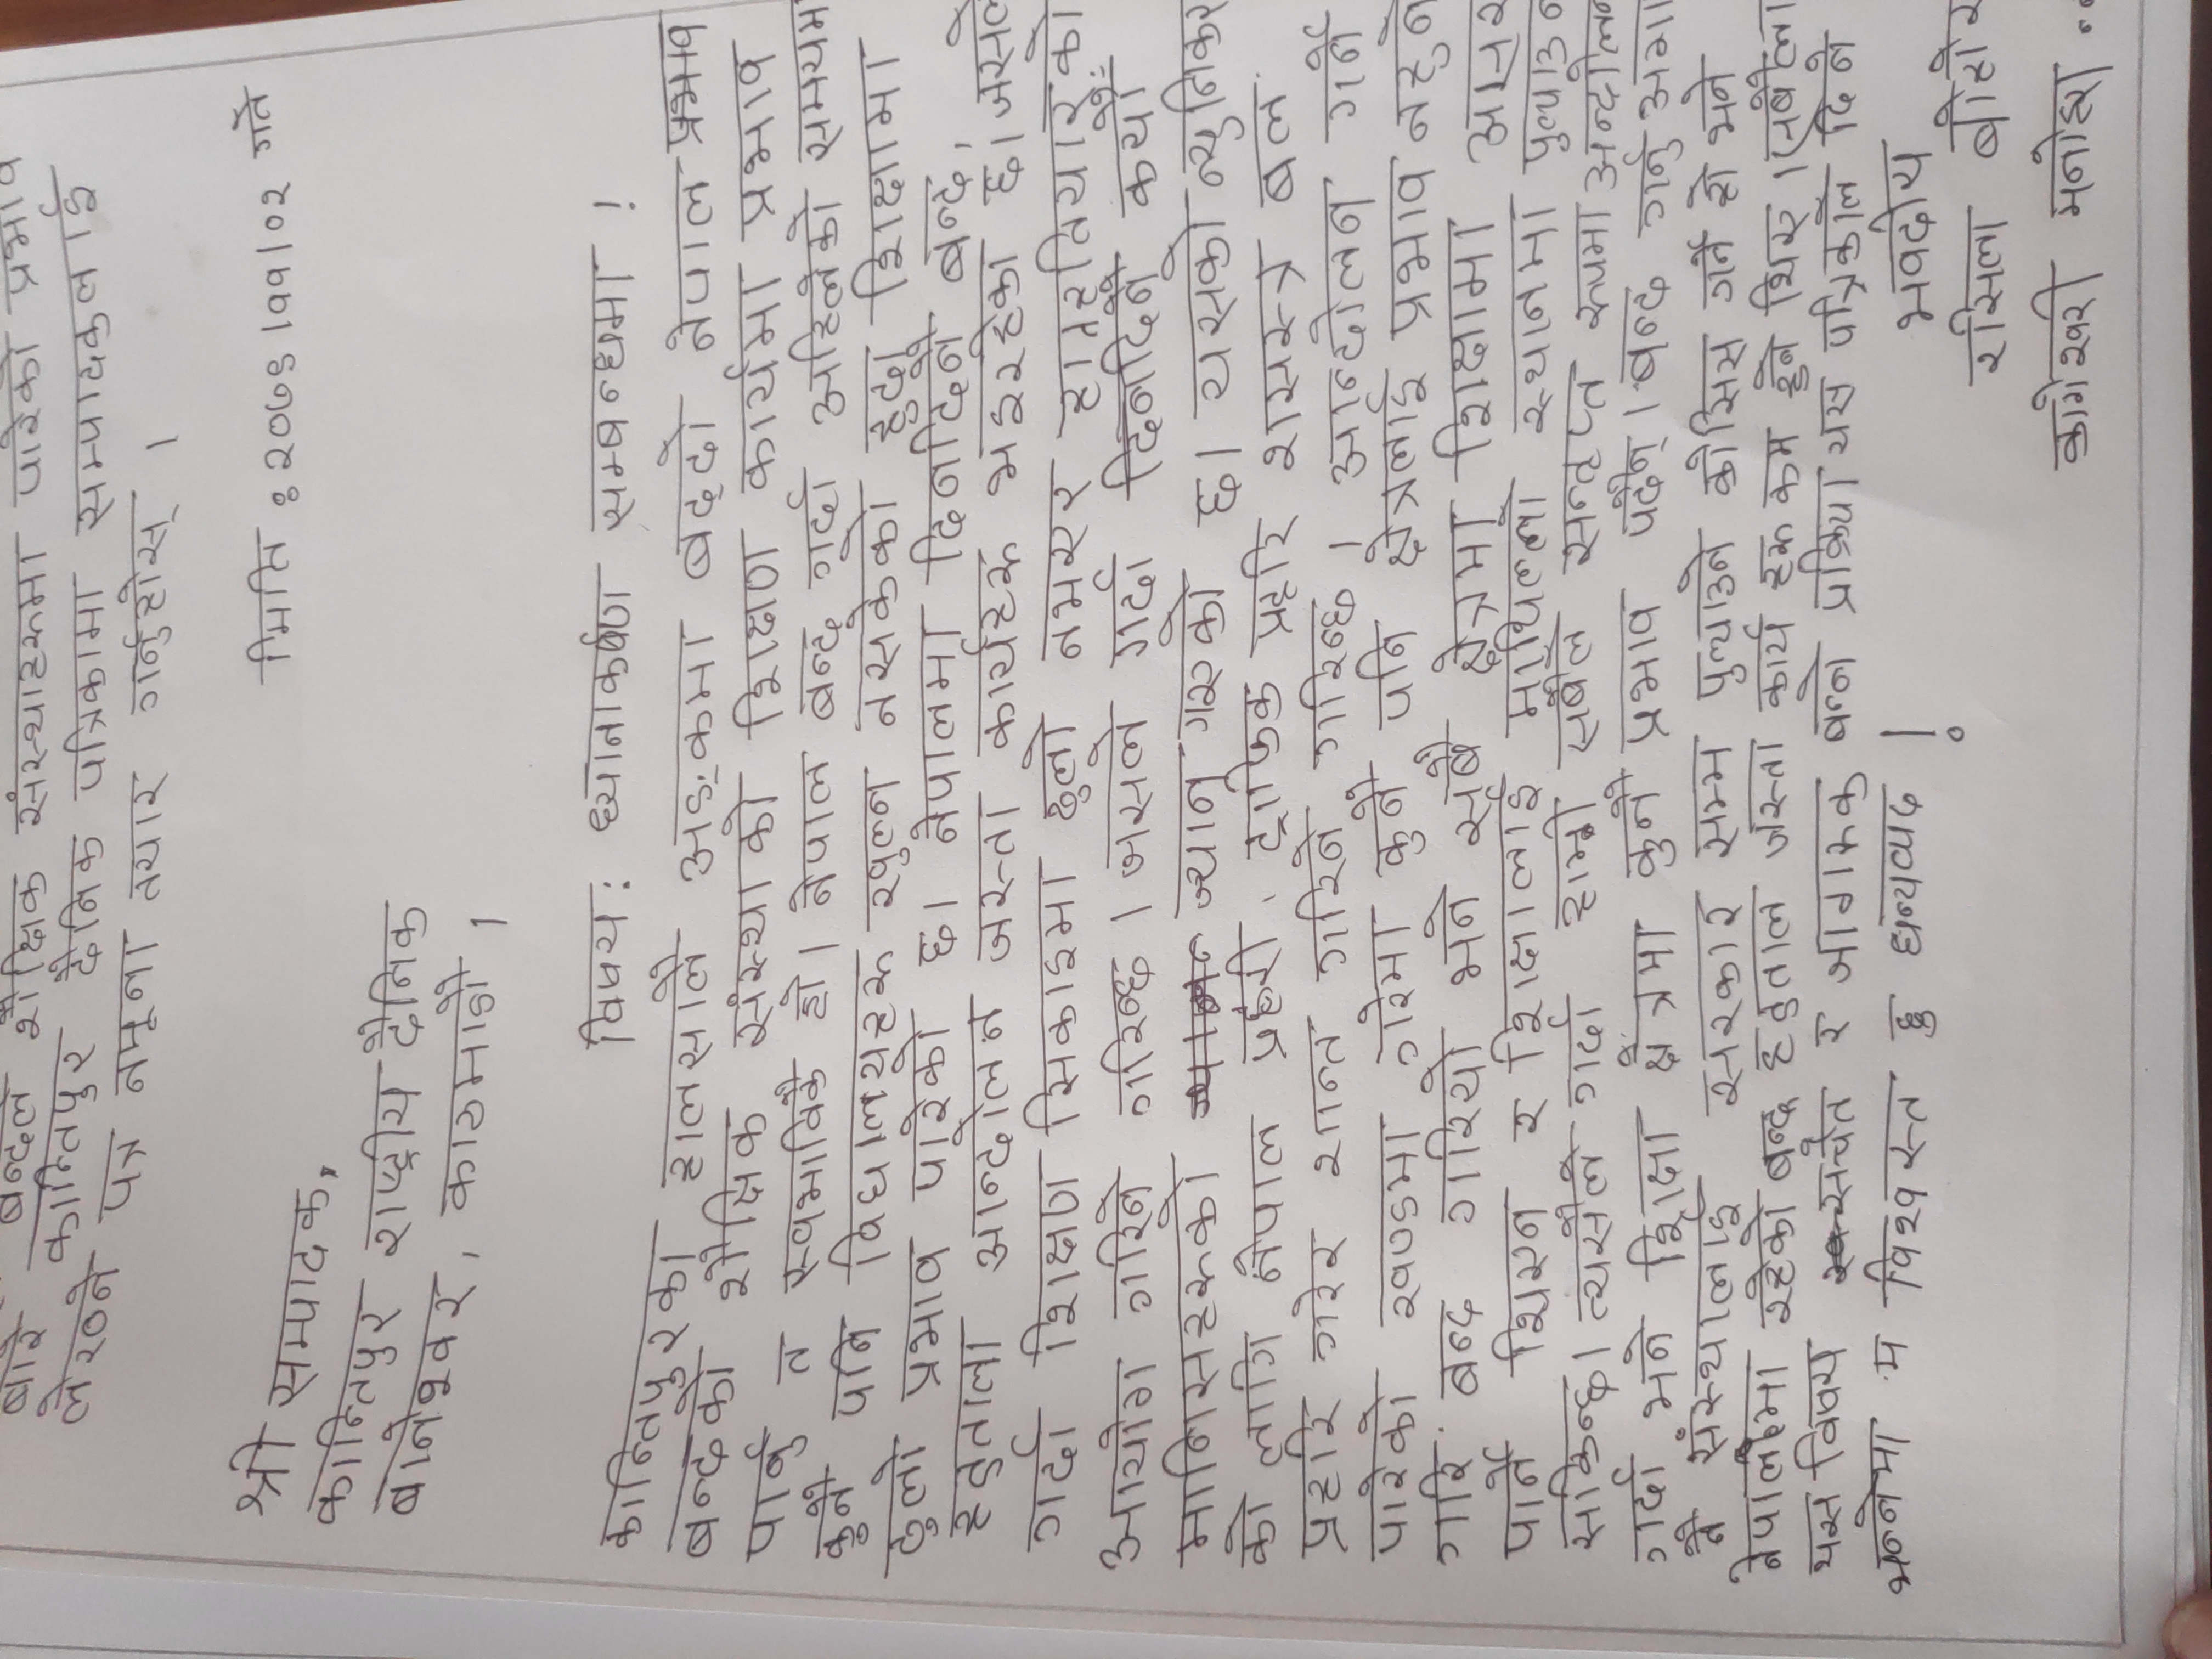 बारे बन्दले शैक्षिक संस्थाहरुमा पारेको प्रभाव
कान्तिपुर दैनिक पत्रिकामा सम्पादकलाई
लेख्ने पत्र नमूना तयार गर्नुहोस् ।
मिति : २०७९।११।०२ गते
श्री सम्पादक,
कान्तिपुर राष्ट्रीय दैनिक
बानेश्वर, काठमाडौ ।
विषय : ध्यानाकर्षण सम्बन्धमा !
कान्तिपुरका हालसालै अङ्कमा बढ्दो नेपाल प्रभाव
बन्दको शैक्षिक संस्थाको शिक्षण कार्यमा प्रभाव
पार्नु त स्वभाविकै हो। नेपाल बन्द गर्दा अहिलेको समयम
कुनै पनि विद्यालयहरु खुल्न नसकेको हुदा शिक्षामा
ठुलो प्रभाव पारेको छ। नेपालमा दिनदिनै बन्द,
हडताला आन्दोलन जस्ता कार्यहरु भइरहेका छ। जसले
गर्दा शिक्षण सिकाइमा ठुलो नभएर हातहतियारको
आयोग गरिने गरिन्छ । जसले गर्दा दिनदिनै कयौं
मानिसहरुको ज्यान गएको छ। यसको न्युनिकर
को लागि नेपाल प्रहरी, ट्राफिक प्रहरि शसस्त्र बल
प्रहरि गरेर शान्त गरिने गरिन्छ । आन्दोलन गर्ने
पारेको खण्डमा गरेमा कुनै पनि क्षेत्रलाई प्रभाव नहुने
गरि बन्द गरियो भने सबै क्षेत्रमा शिक्षामा असर
पार्ने थिएन र शिक्षालाई माथिल्लो स्थानमा पुल्याउन
सकिन्छ। त्यसैले गर्दा हामी सबैले सन्तृप्त रूपमा अन्दोलन
गर्दा भने शिक्षा क्षेत्रमा कुनै प्रभाव पर्दैन्। बन्द गर्नु अगा
नै संस्थालाई सरकार सम्म पुल्याउने कोसिस गर्ने हो भने
नेपालमा रहेको बन्द हडताल जस्ता कार्य हरु कम हुने थिए । सबैला
यस विषय सचेत र जागरुक बन्ने प्रक्रिया यस पत्रिकाले दिने
भन्नेमा म विश्वस्त छु धन्यव्याद !
भवदीय
रसिला बोहोर
कागेश्वरी मनोहरा ..